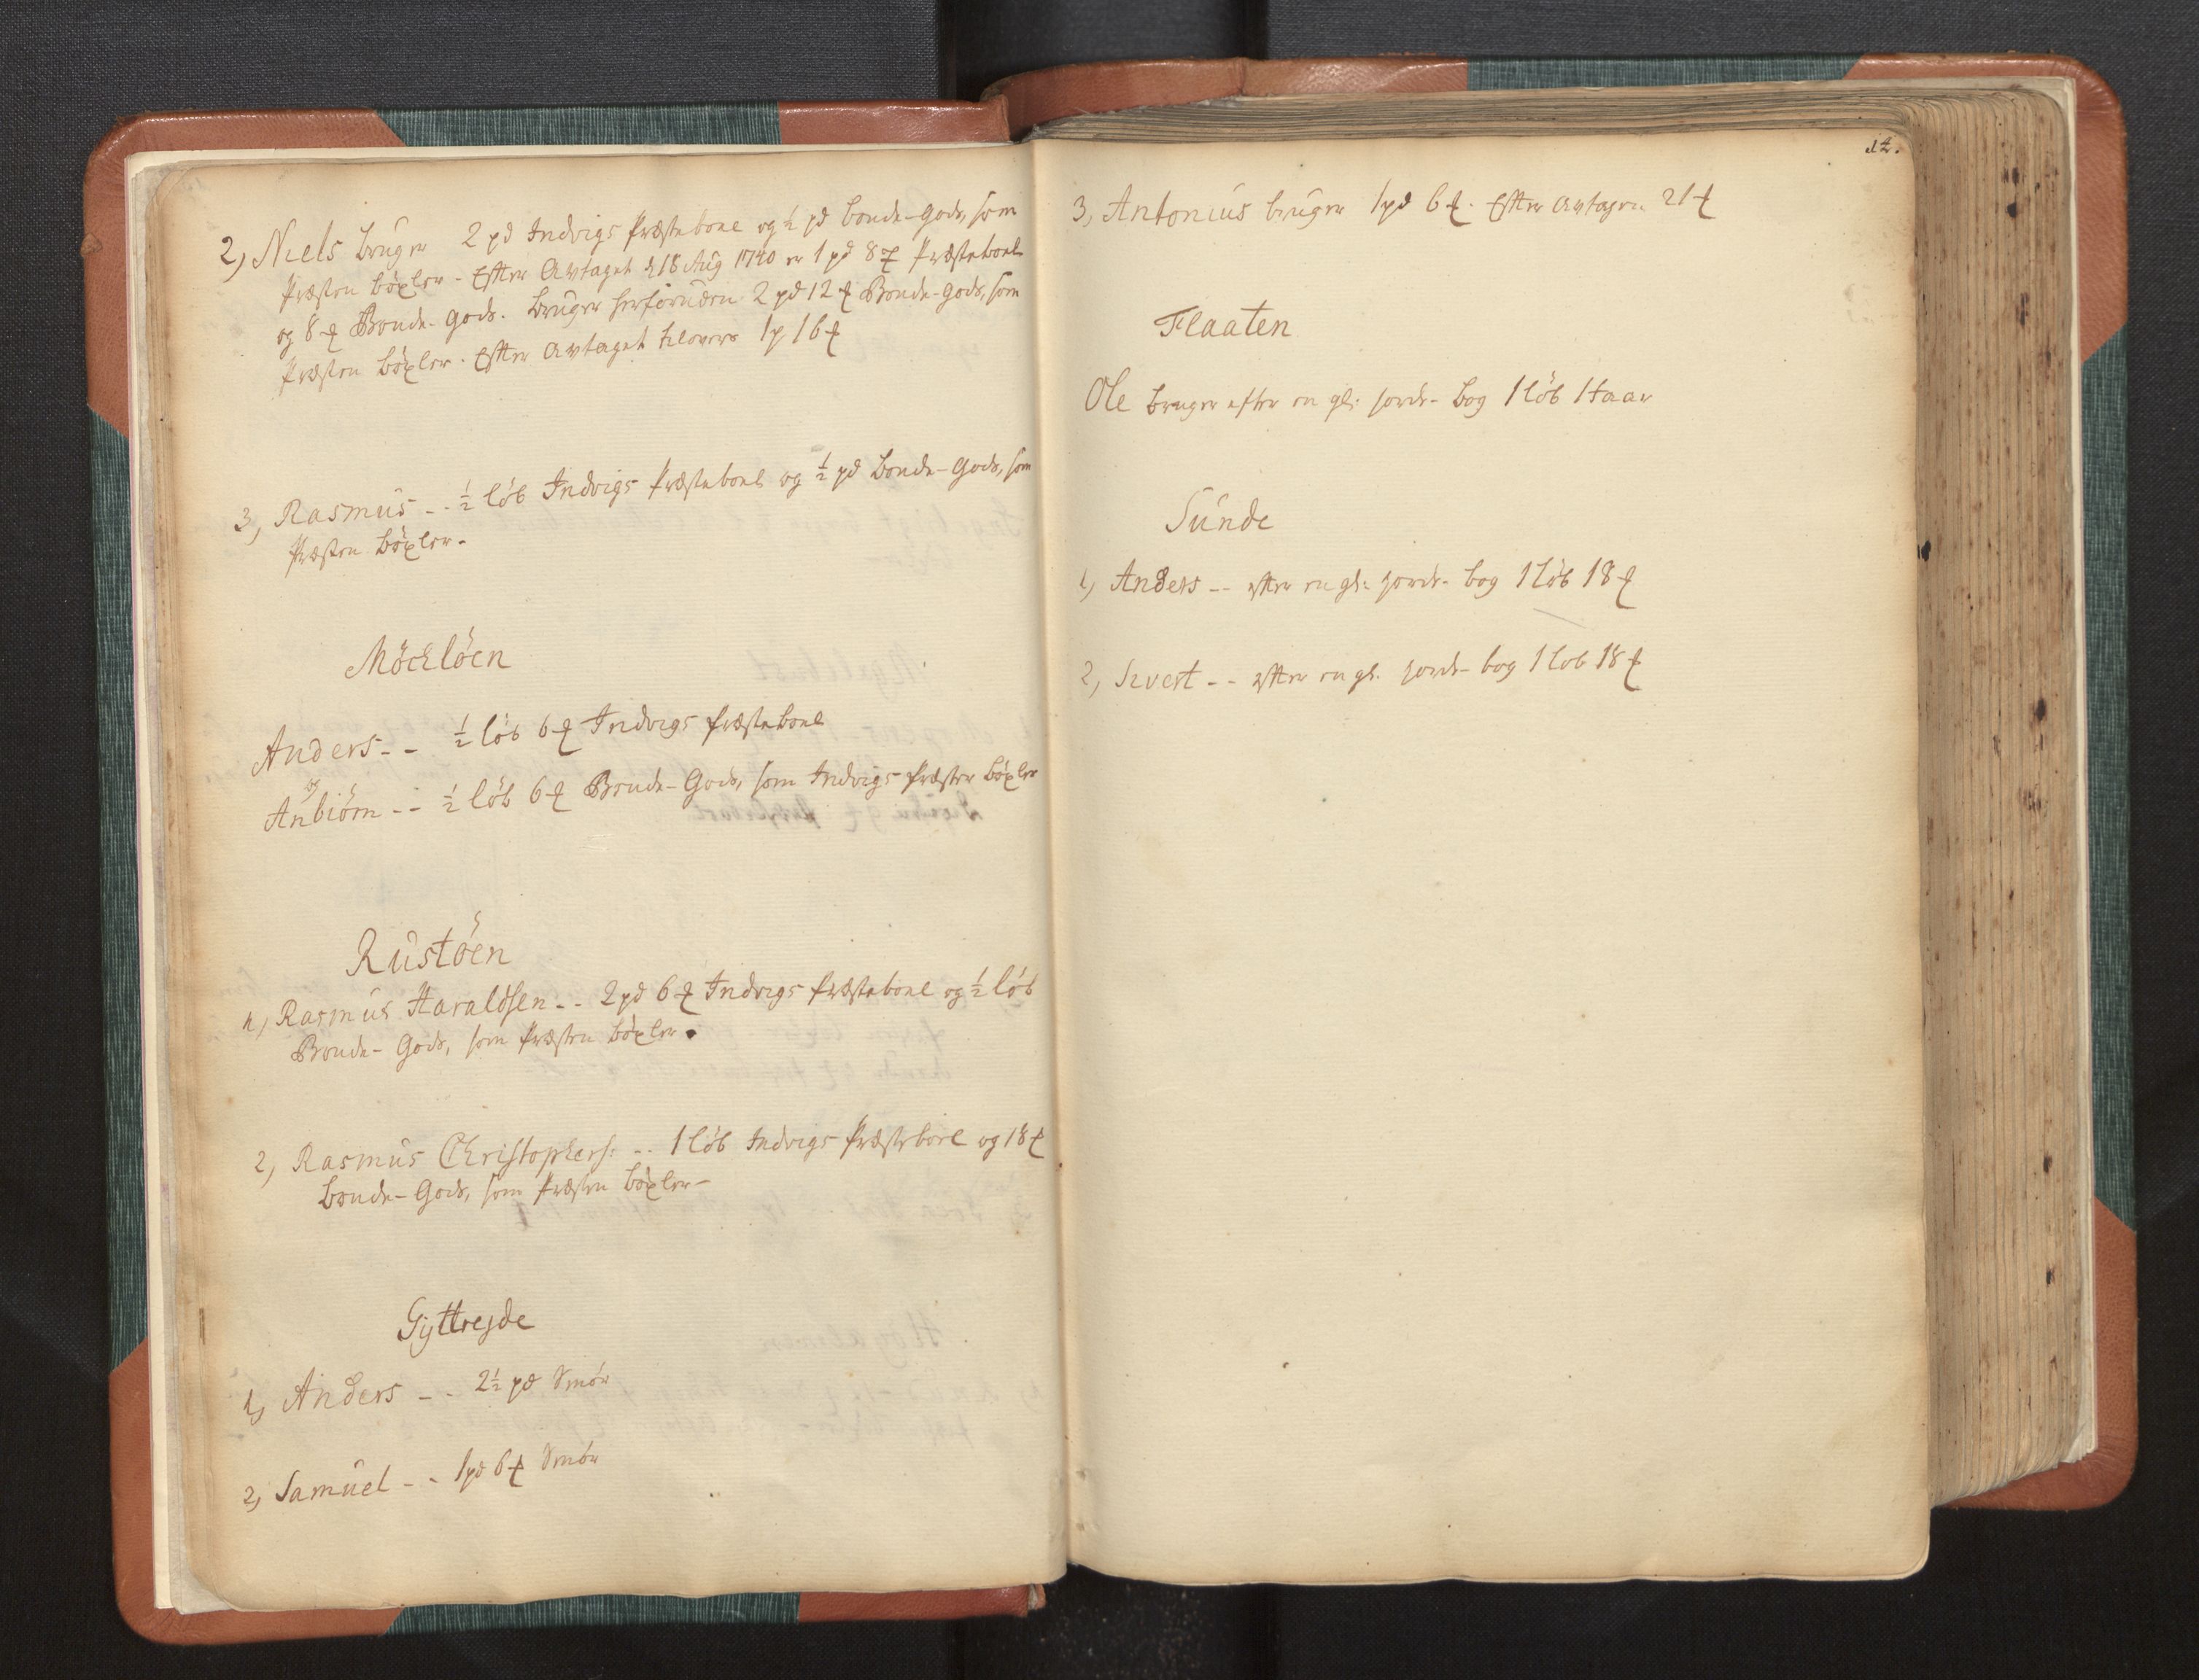 2) Niels bruger 2 pd Indvigs Præstebohl og ½ pd bonde-gods, som
Præsten böxler. Efter Avtaget d 18 Aug 1740 er 1 pd 8 ℔ Præstebohl
og 8 ℔ Bonde-gods. bruger herforuden 2 pd 12 ℔ Bonde-gods, som
Præsten böxler. Efter avtaget 1 p 16 ℔
3, Rasmus -- ½ löb Indvigs Præstebohl og ½ pd bonde-gods, som
Præsten böxler.
Möcklöen
Anders -- ½ löb 6 ℔ Indvigs Præstebohl
og
Anbiörn -- ½ löb 6 ℔ Bonde-Gods, som Indvigs Præster böxler
Rustöen
1, Rasmus Haraldsen -- 2 pd 6 ℔ Indvigs Præstebohl og ½ löb
Bonde-Gods, som Præsten böxler.
2, Rasmus Christophers: -- 1 löb Indvigs Præstebohl og 18 ℔
bonde-Gods, som Præsten böxler-
Gyttreyde
1, Anders -- 2½ pd Smör
2, Samuel -- 1 pd 6 ℔ Smör
14.
3, Antonius bruger 1 pd 6 ℔. Efter avtagen 21 ℔
Flaaten
Ole bruger efter en gl: jorde-bog 1 löb 1 Haar
Sunde
1, Anders -- efter en gl: jorde-bog 1 löb 18 ℔
2, Sivert -- efter en gl. jorde-bog 1 löb 18 ℔